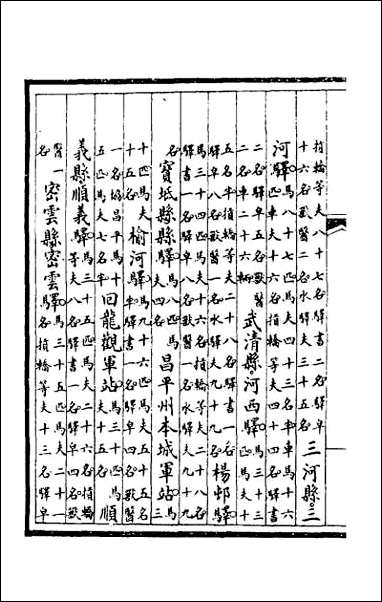 抬轎等夫八十七名驛書二名驛皁
十六名獸醫二名水驛夫三十五名
三河縣三
河驛
馬八十七匹馬夫四十三名半車馬十六
匹車夫十六名抬轎等夫四十四名驛書
二名驛皁五名獸醫
二名車二十六輛
武清縣河西驛
馬三十三
匹馬夫十
五名半抬轎等夫二十八名驛書一名
驛皁八名獸醫一名水驛夫九十九名
楊邨驛
馬三十四匹馬夫十六名抬轎等夫二十八名
驛書一名驛皁八名獸醫一名水驛夫九十九
名
寶坻縣縣驛
馬八匹馬
夫四名
昌平州本城軍站
馬三
十匹馬夫
十五名
榆河驛
馬九十六匹馬夫五十五名
半驛書一名驛皁四名獸醫
一名協昌平馬十
五匹馬夫七名半
回龍觀軍站
馬三十匹馬
夫十五名
順
義縣順義驛
馬三十五匹馬夫二十六名抬轎
等夫八名驛書一名驛皁四名獸
醫一
名
密雲縣密雲驛
馬三十三匹馬夫二十一
名抬轎等夫十三名驛皁